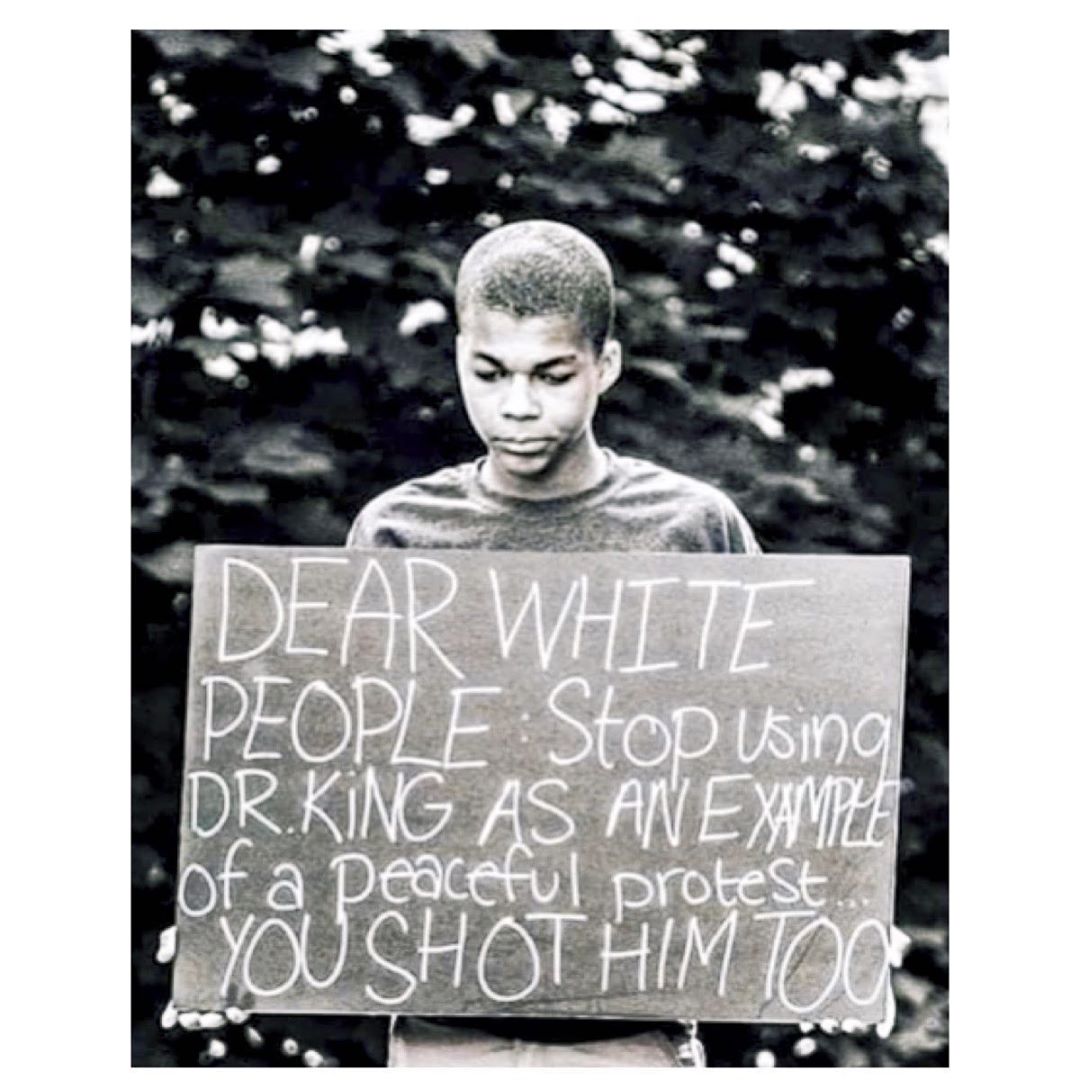 DEAR WHITE
PEOPLE: Stop using
DR. KiNG AS AN EXAMPLE
of a peaceful protest...
YOU SHOT HIM TOO